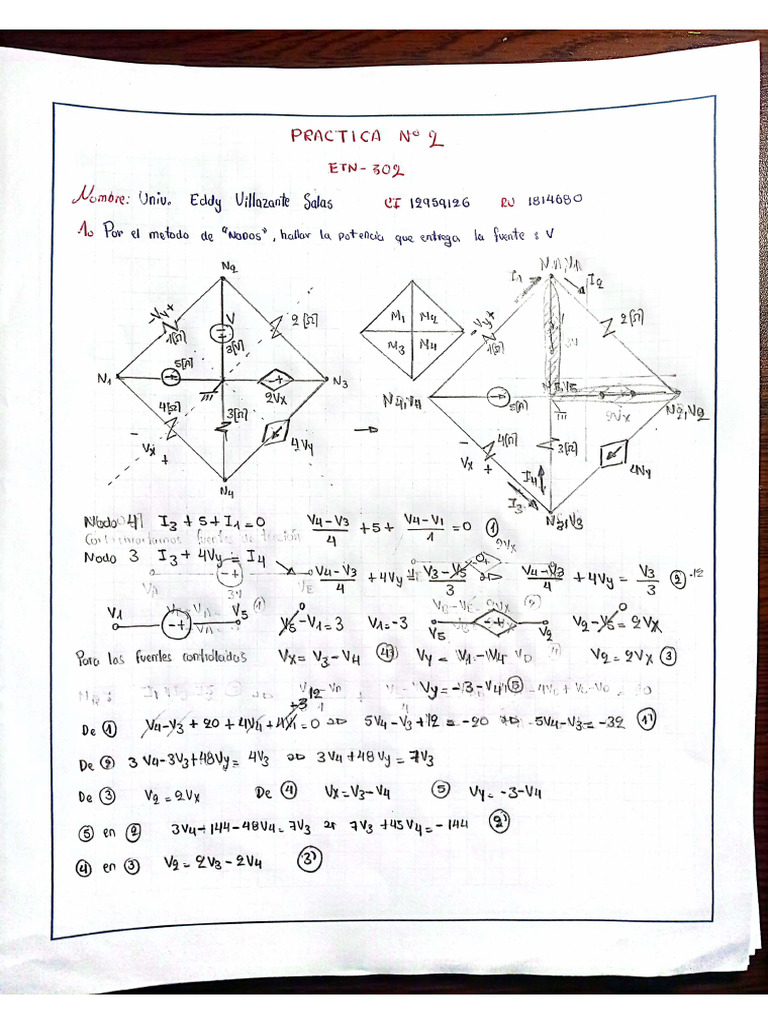 PRACTICA Nº 2
ETN-302
Nombre: Univ. Eddy Villazante Salas CI 12959126 RU 1814680
1o Por el metodo de "NODOS", hallar la potencia que entrega la fuente : V
N2
-Vy+
1[Ω]
V
3[V]
2[Ω]
N1
5[A]
-+
2Vx
N3
4[Ω]
- Vx +
3[Ω]
4Vy
N4
M1 M2
M3 M4
I1
I2
Vy+
1[Ω]
2[Ω]
5[A]
2Vx
4[Ω]
- Vx +
3[Ω]
4Vy
I4
I3
Nodo 4 I3 + 5 + I1 = 0 V4-V3/4 + 5 + V4-V1/1 = 0 ①
Nodo 3 I3 + 4Vy = I4 V4-V3/4 + 4Vy = V3-V5/3 V4-V3/4 + 4Vy = V3/3 ② ·12
V1 -+ V5 V5-V1=3 V1=-3 V5 -+ V2 V2-V5=2Vx
Para las fuentes controladas Vx = V3-V4 ④ Vy = V1-V4 V2=2Vx ③
Vy=-3-V4 ⑤
De ① V4-V3+20+4V4+12=0 5V4-V3+12=-20 5V4-V3=-32 ①'
De ② 3V4-3V3+48Vy=4V3 3V4+48Vy=7V3
De ③ V2=2Vx De ④ Vx=V3-V4 ⑤ Vy=-3-V4
⑤ en ② 3V4-144-48V4=7V3 7V3+45V4=-144 ②'
④ en ③ V2=2V3-2V4 ③'